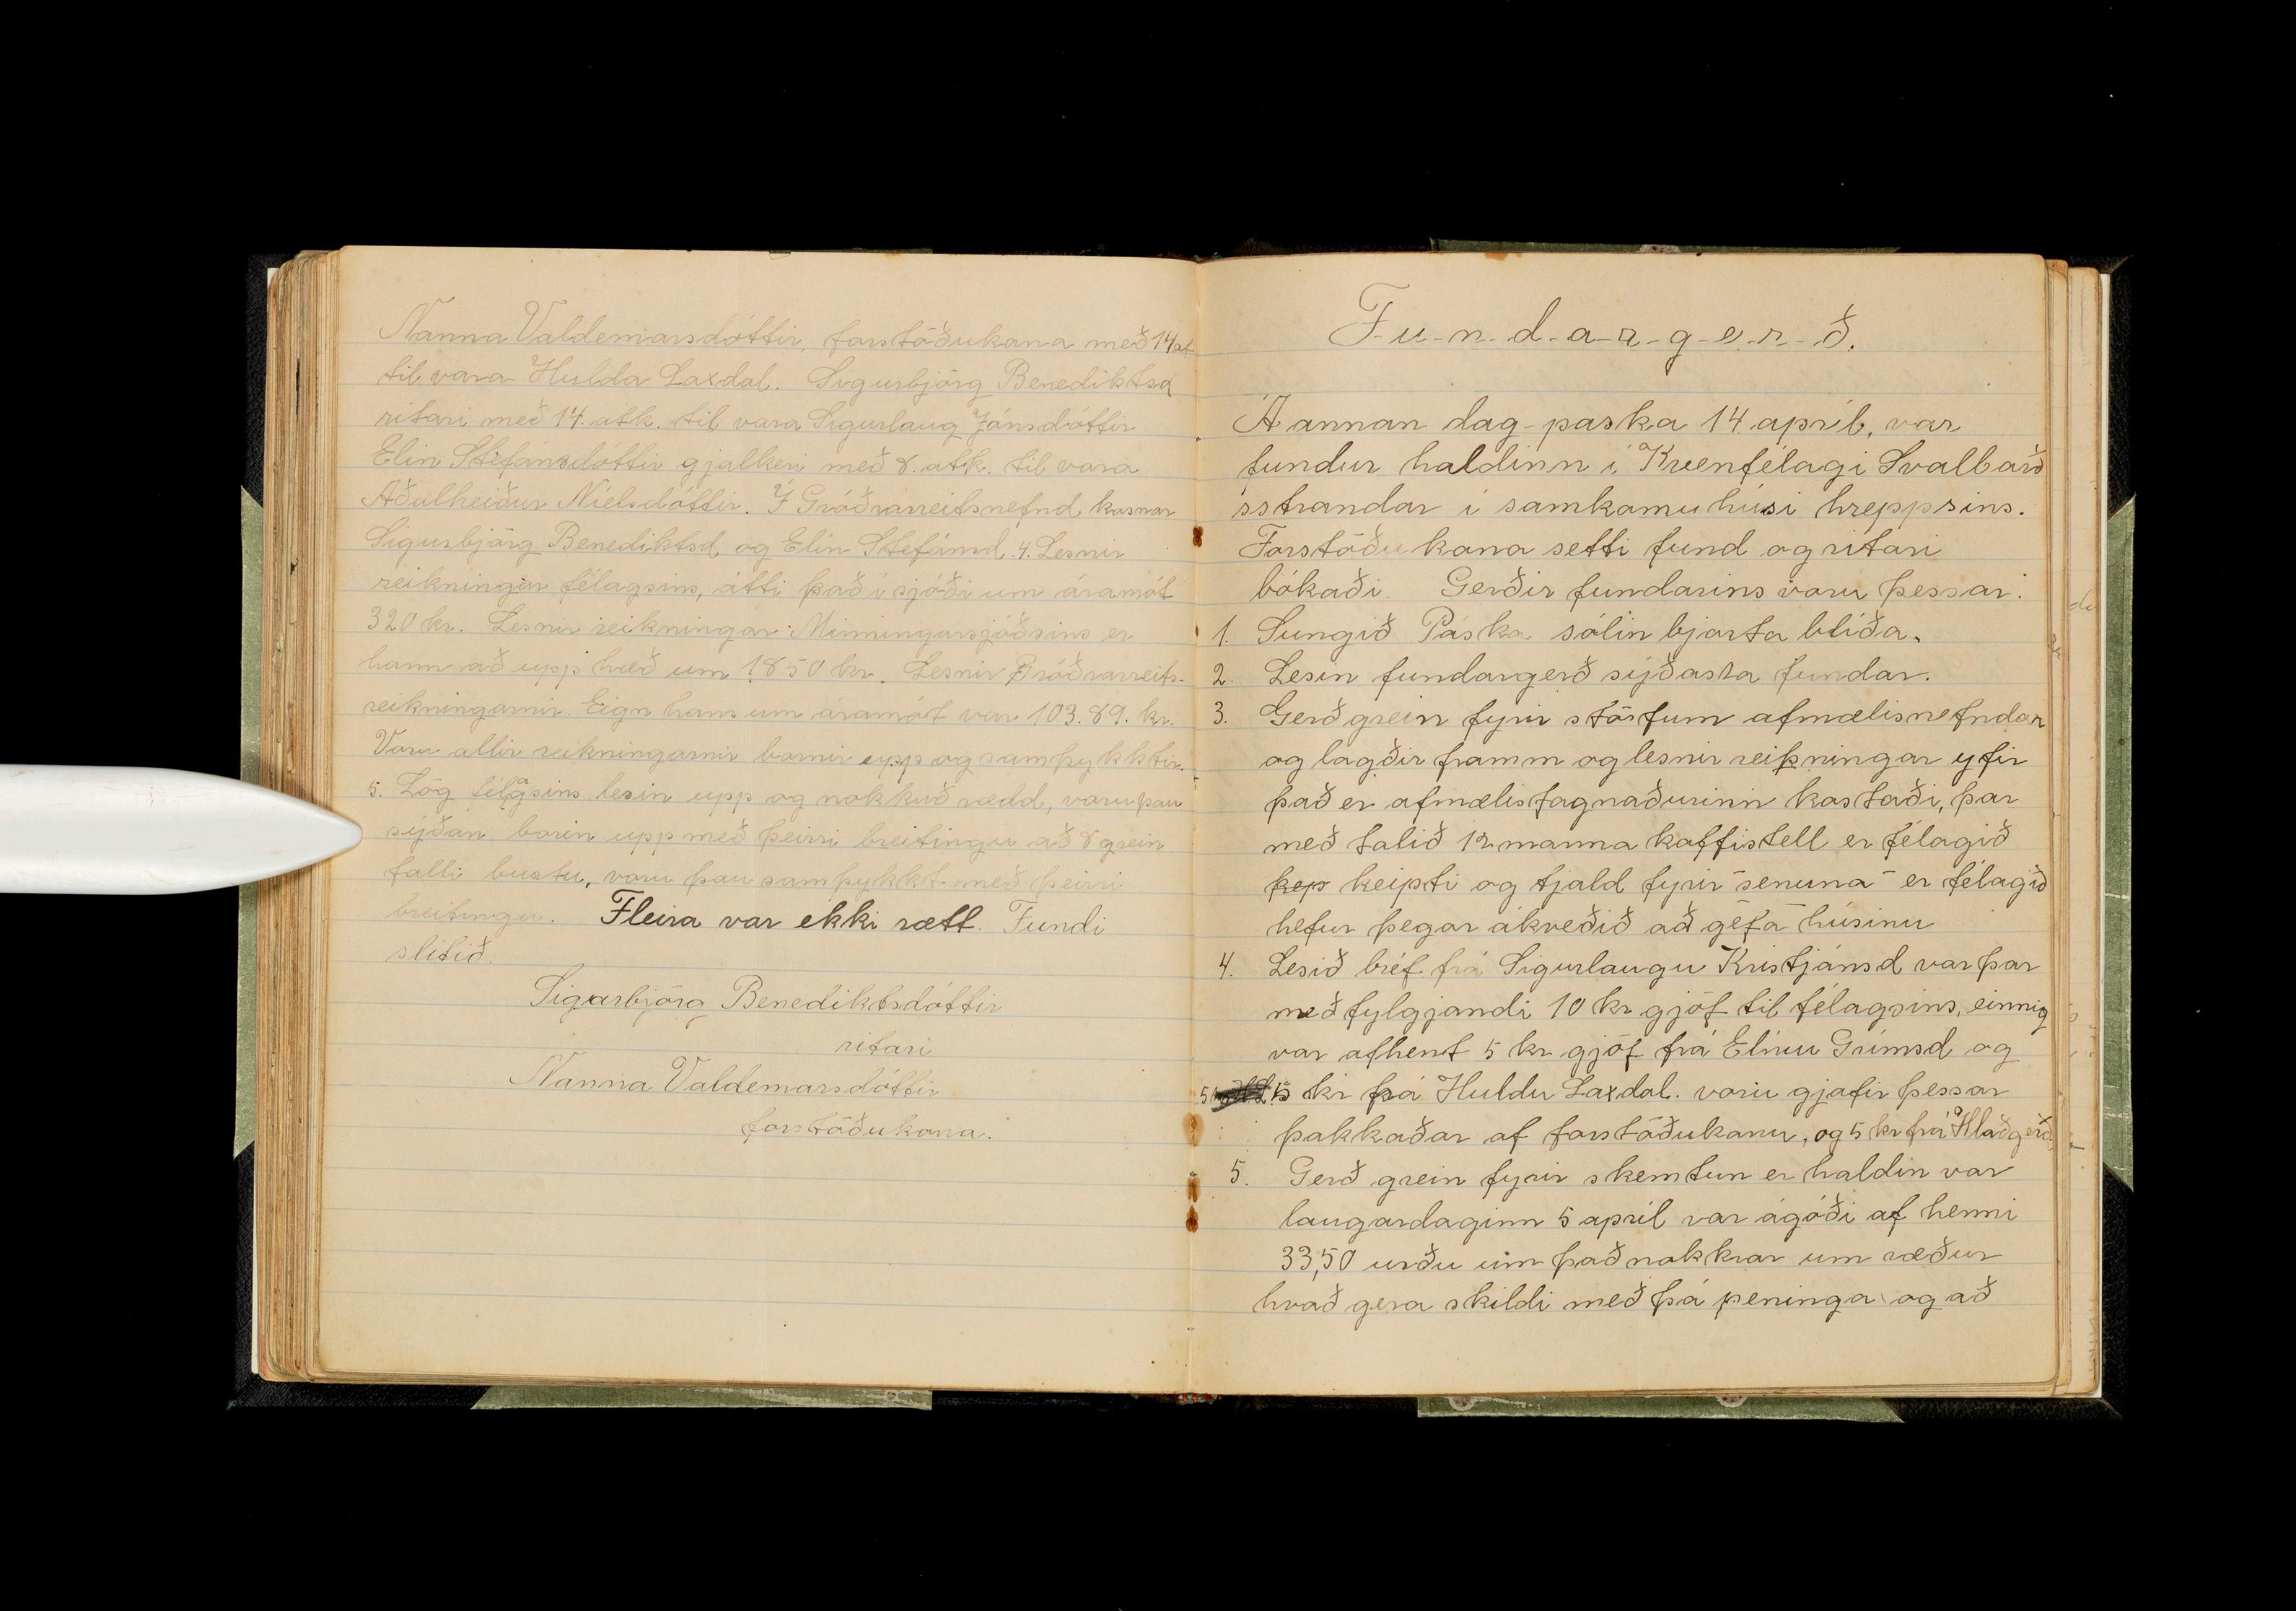 Nanna Valdemarsdóttir, forstöðukona með 14 at
til vara Hulda Laxdal. Sigurbjörg Benediktsd
ritari með 14. atk. til vara Sigurlaug Jónsdóttir
Elin Stefánsdóttir gjalkeri með 8. atk. til vara
Aðalheiður Níelsdóttir. Í Gróðrarreitsnefnd kosnar
Sigurbjörg Benediktsd, og Elín Stefánsd. 4. Lesnir
reikningar félagsins, átti það í sjóði um áramót
320 kr. Lesnir reikningar Minningarsjóðsins er
hann að upp hæð um 1850 kr. Lesnir Gróðrarreits-
reikningarnir. Eign hans um áramót var 103.89. kr.
Voru allir reikningarnir bornir upp og samþykktir.
5. Lög félagsins lesin upp og nokkuð rædd, voru þau
sýðan borin upp með þeirri breitingu að 8 grein
falli burtu, voru þau samþykkt með þeirri
breitingu. Fleira var ekki rætt. Fundi
slitið.
Sigurbjörg Benediktsdóttir
ritari
Nanna Valdemarsdóttir
forstöðukona.
F-u-n-d-a-r-g-e-r-ð.
Á annan dag-paska 14 apríl, var
fundur haldinn í Kvenfélagi Svalbarð
sstrandar í samkomuhúsi hreppsins.
Forstöðukona setti fund og ritari
bókaði. Gerðir fundarins voru þessar.
1. Sungið Páska sólin bjarta blíða.
2. Lesin fundargerð sýðasta fundar.
3. Gerð grein fyrir störfum afmælisnefndar
og lagðir framm og lesnir reikningar yfir
það er afmælisfagnaðurinn kostaði, þar
með talið 12 manna kaffistell er félagið
kep keipti og tjald fyrir "senuna" er félagið
hefur þegar ákveðið að gefa húsinu
4. Lesið bréf frá Sigurlaugu Kristjánsd var þar
með fylgjandi 10 kr gjöf til félagsins, einnig
var afhent 5 kr gjöf frá Elínu Grímsd og
5 kr frá Huldu Laxdal. voru gjafir þessar
þakkaðar af forstöðukonu, og 5 kr frá Hlaðgerð
5. Gerð grein fyrir skemtun er haldin var
laugardaginn 5 apríl var ágóði af henni
33,50 urðu um það nokkrar um ræður
hvað gera skildi með þá peninga og að